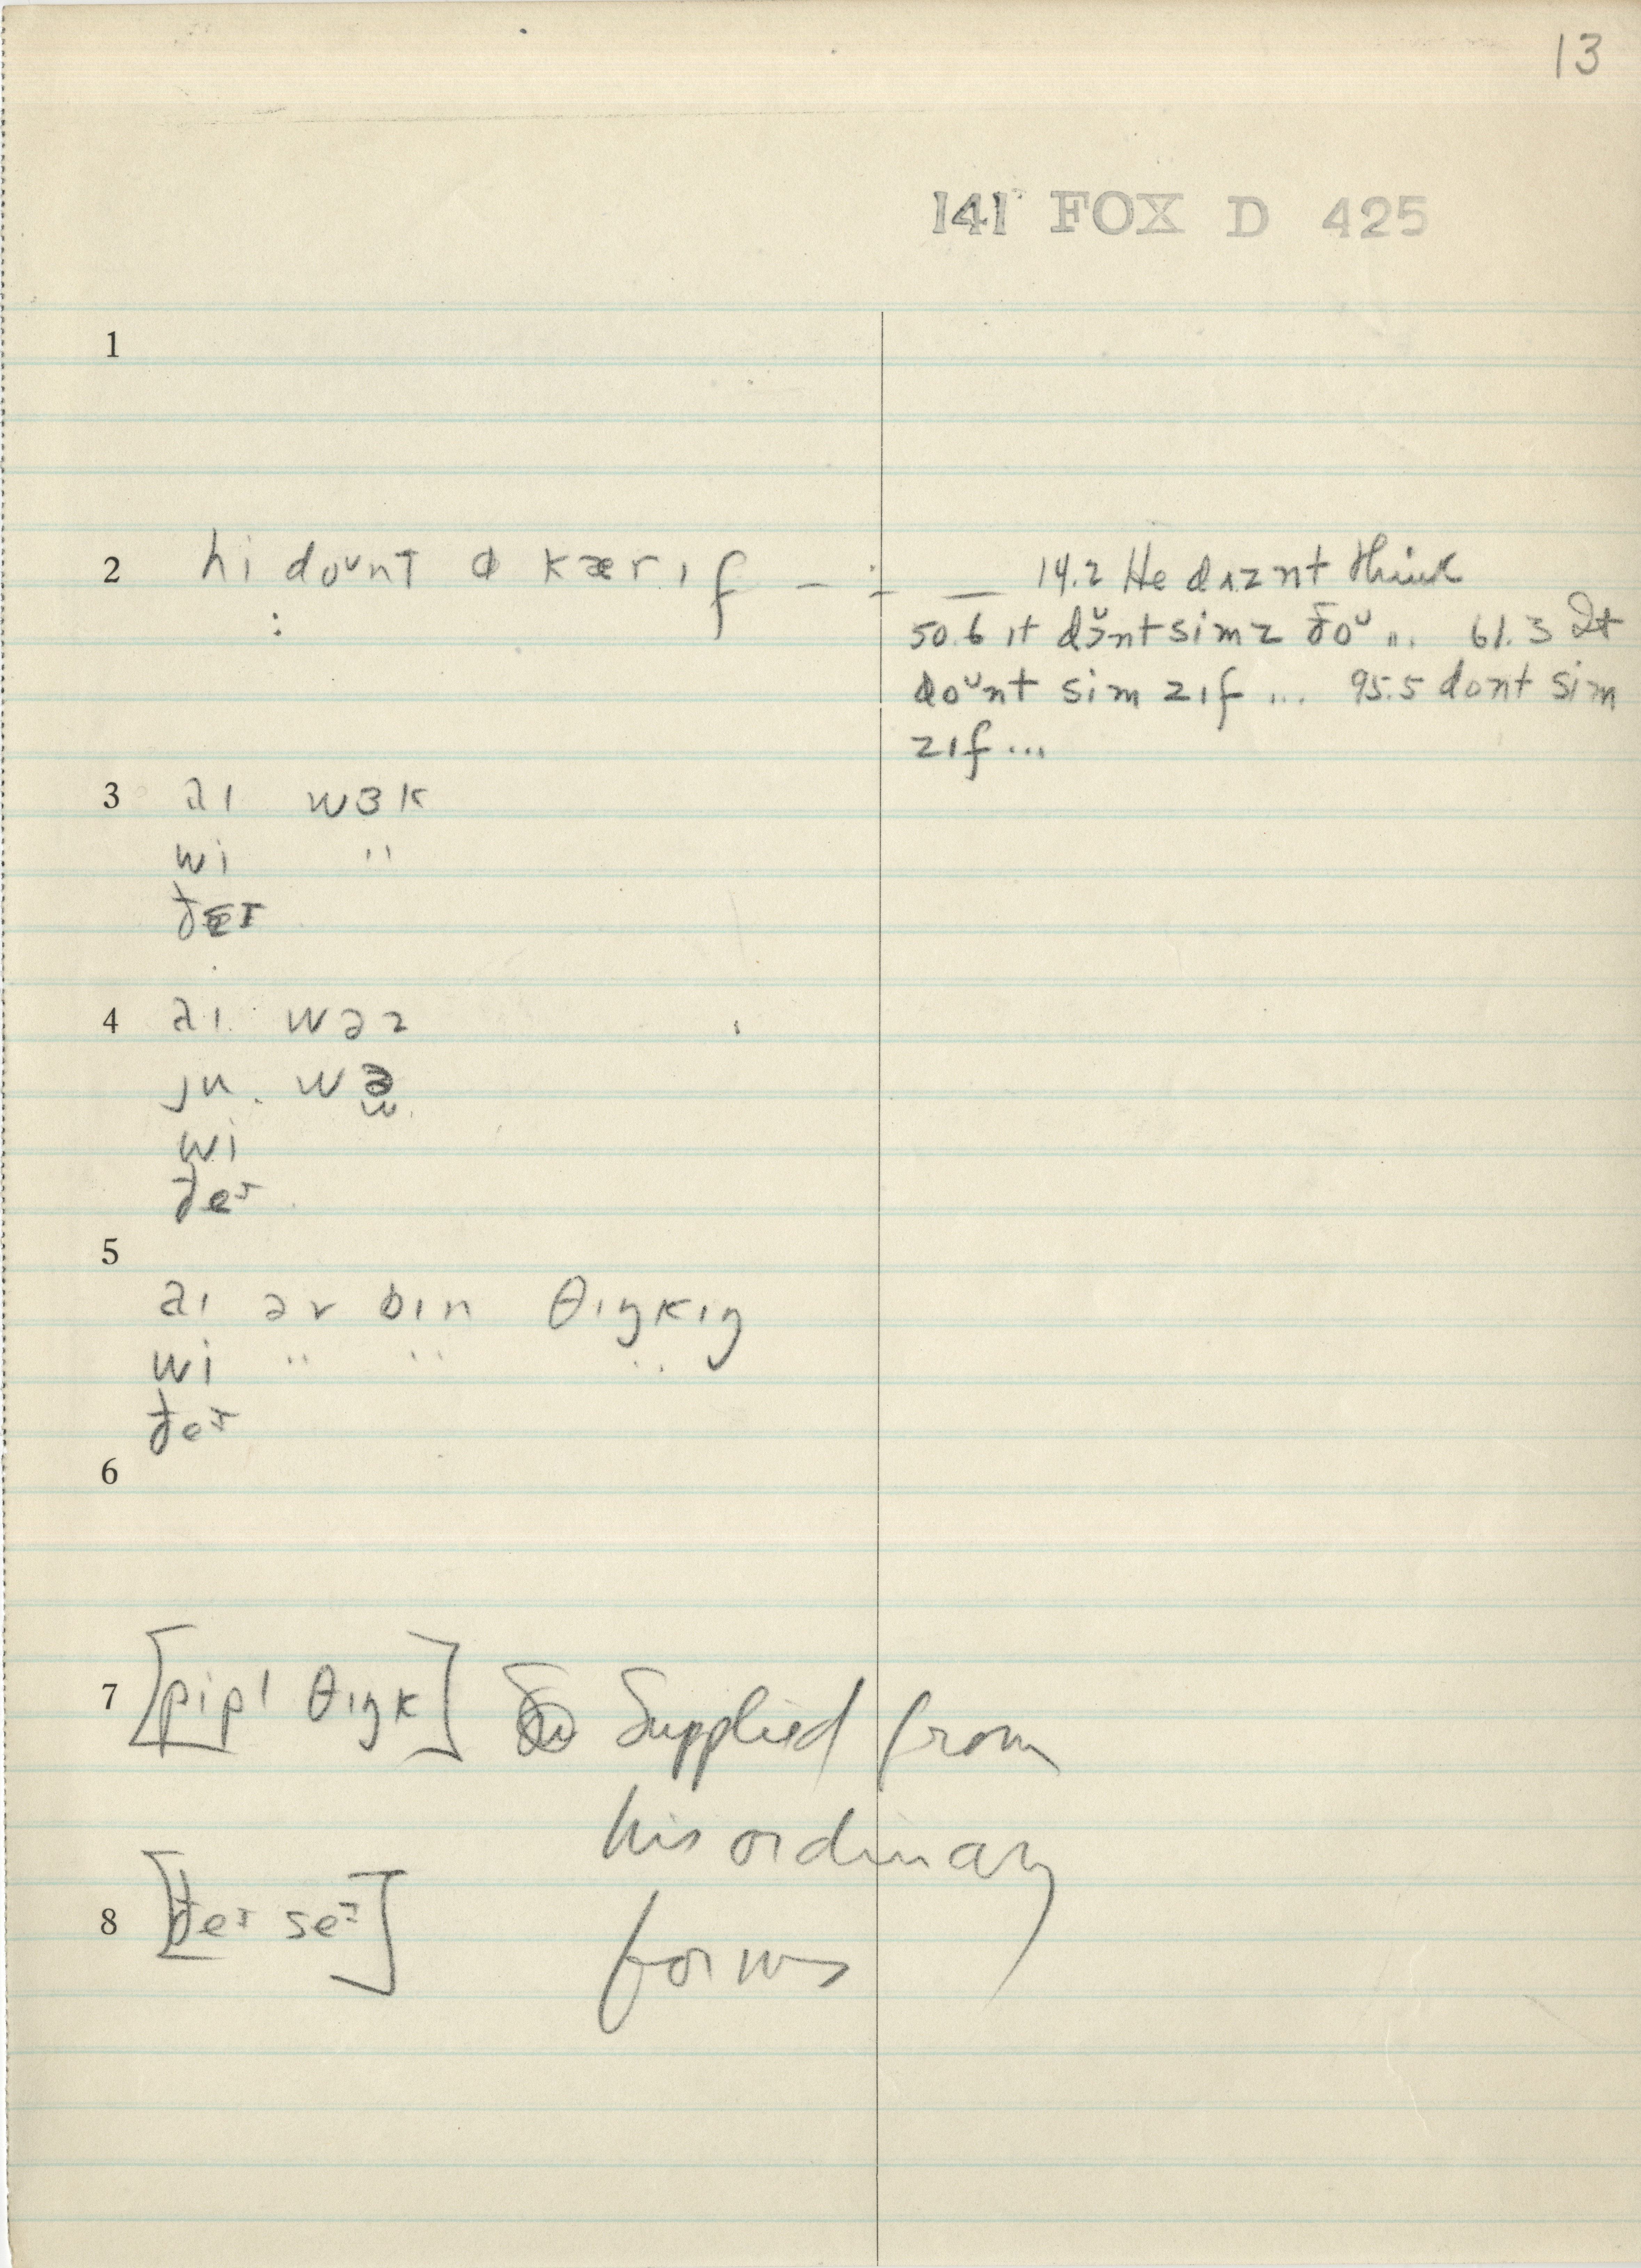 13
141 FOX D 425
1
2 hi doᵘnt kær ɪf — ÷ — 14.2 He dʌznt think
50.6 ɪt dɔ̆ᵘnt sim z ðoᵘ „. 61.3 It
doᵘnt sim z ɪf ... 95.5 dont sim
z ɪf ...
3 aɪ wɜk
wi "
ðeɪ
4 aɪ wəz
ju wɜ
wi
ðeᶦ
5
aɪ əv bɪn θɪŋkɪŋ
wi " " "
ðeᶦ
6
7 [pipl θɪŋk] Supplied from
his ordinary
8 [ðeᶦ seᶦ] forms